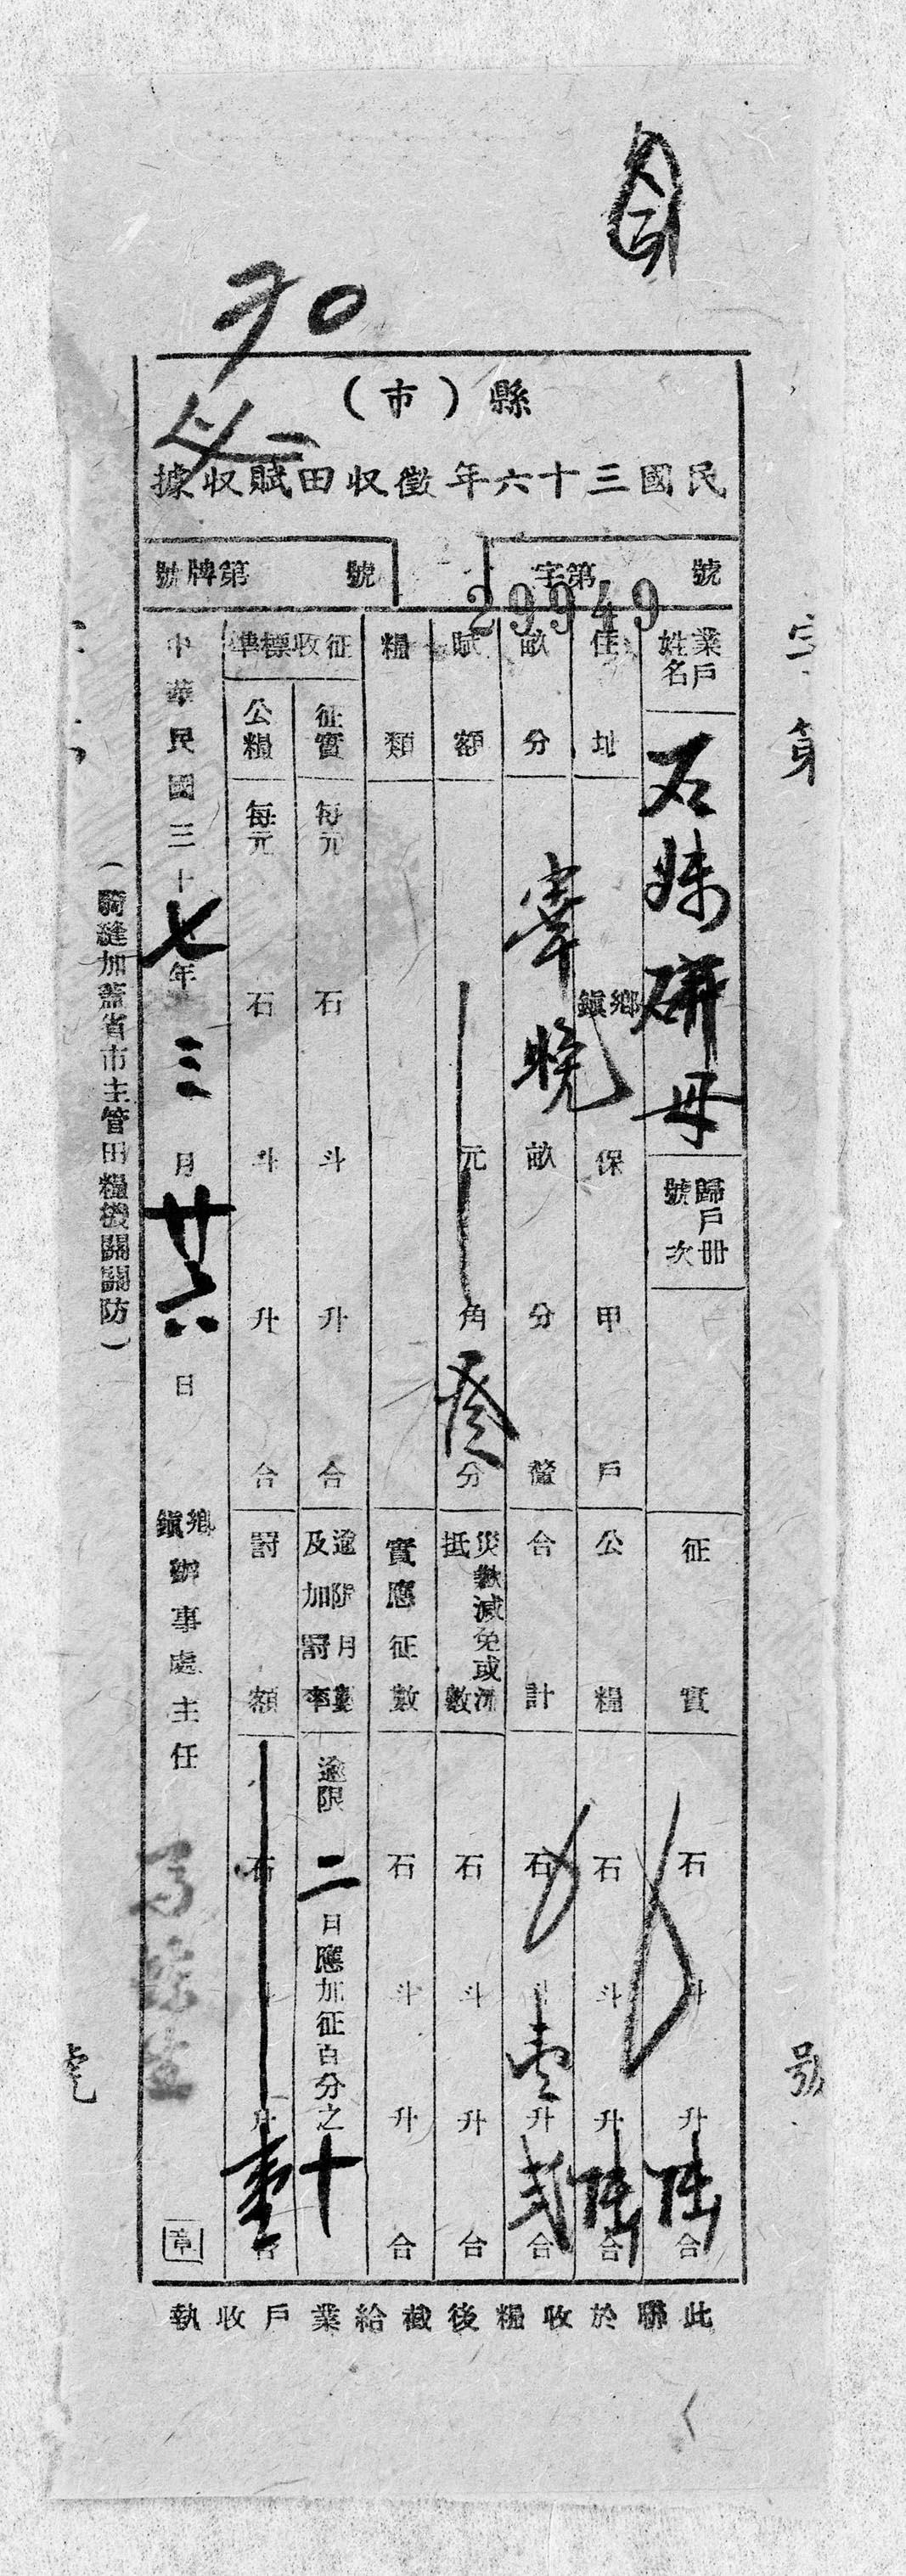 90
縣（市）
民國三十六年徵收田賦收據
字第29949號
號牌第　號
業戶姓名　石妹研母
歸戶冊號次
住址　鄉鎮　保　甲　戶
畝分　畝　分　釐
賦額　元　角　叁　分
糧類
征收標準　征實　每元　石　斗　升　合
公糧　每元　石　斗　升　合
征實　石　斗　升　陆　合
公糧　石　斗　升　陆　合
合計　石　斗　壹　升　弍　合
災歉減免或流抵數　石　斗　升　合
實應征數　石　斗　升　合
逾限月數及加罰率　逾限二月應加征百分之十
罰額　石　斗　升　壹　合
中華民國三十七年三月廿六日
鄉鎮辦事處主任
章
（騎縫加蓋省市主管田糧機關關防）
此聯於收糧後截給業戶收執
字第
號